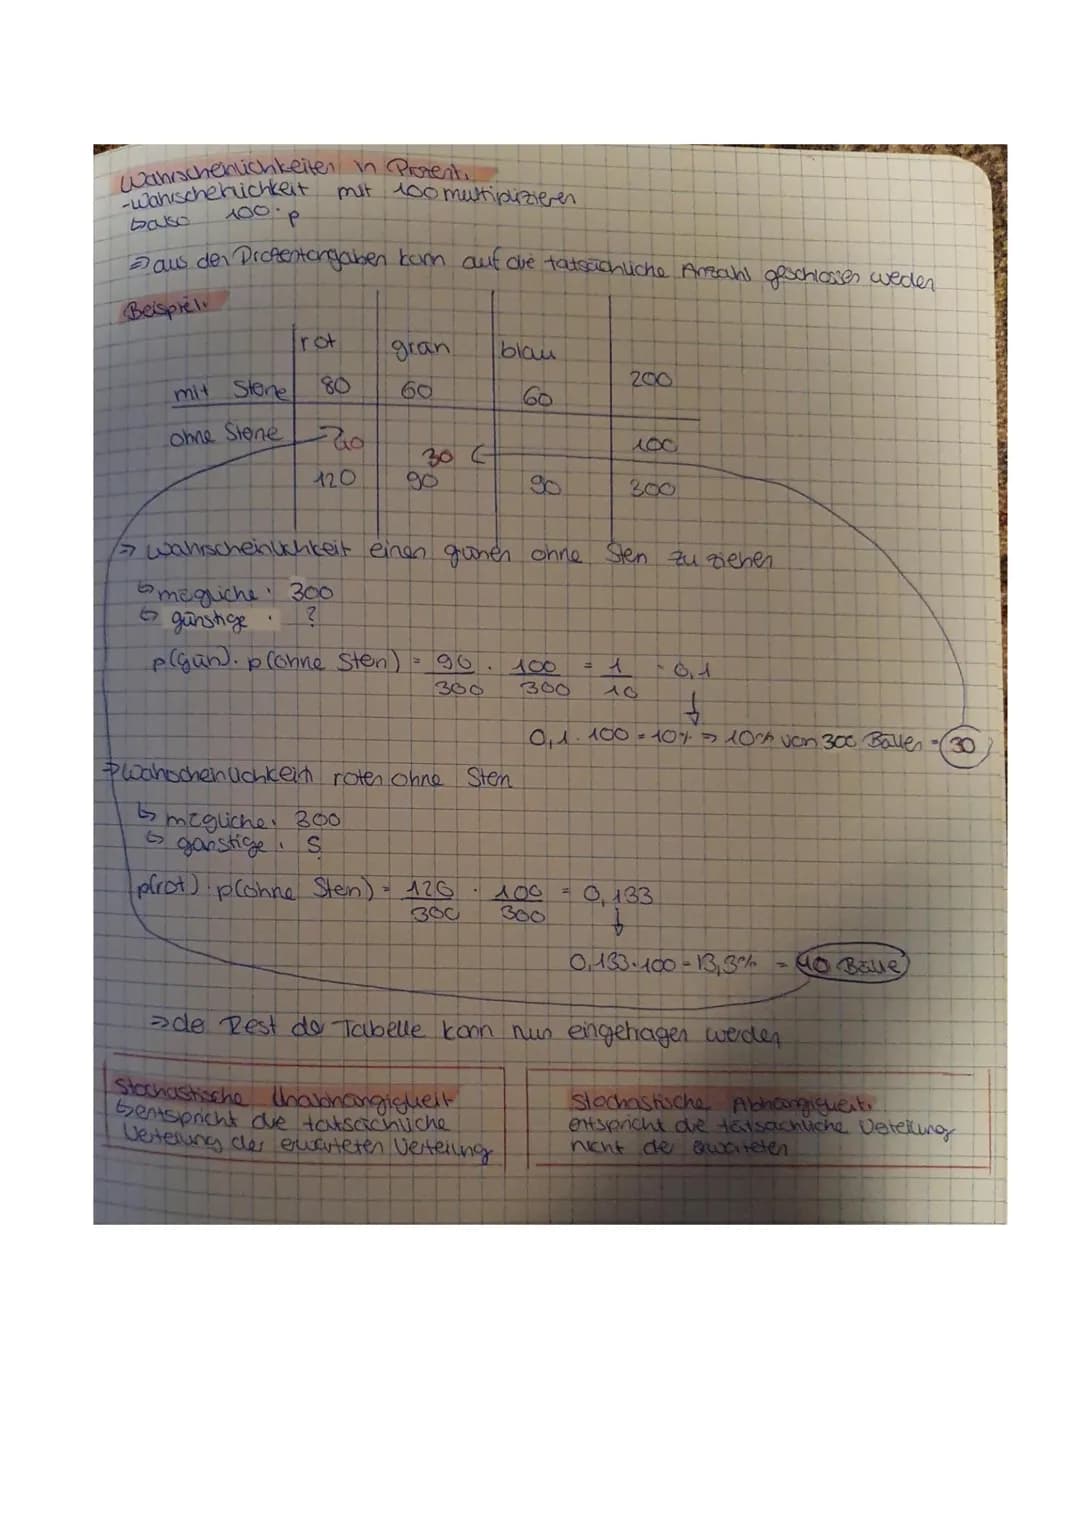 Wahrscheinlichkeiten in Prozent:
-Wahrscheinlichkeit mit 100 multiplizieren
↳also 100·p
⇒ aus den Prozentangaben kann auf die tatsächliche Anzahl geschlossen werden
Beispiel:
rot grün blau
mit Sterne 80 60 60 200
ohne Sterne 40 30 100
120 90 90 300
⇒ Wahrscheinlichkeit einen grünen ohne Stern zu ziehen
↳ mögliche: 300
↳ günstige: ?
p(grün)·p(ohne Stern) = 90/300 · 100/300 = 1/10 = 0,1
0,1·100 = 10% ⇒ 10% von 300 Bällen = 30
⇒ Wahrscheinlichkeit roten ohne Stern
↳ mögliche: 300
↳ günstige: ?
p(rot)·p(ohne Stern) = 120/300 · 100/300 = 0,133
0,133·100 = 13,3% = 40 Bälle
⇒ der Rest der Tabelle kann nun eingetragen werden
Stochastische Unabhängigkeit
↳entspricht die tatsächliche
Verteilung der erwarteten Verteilung
Stochastische Abhängigkeit:
entspricht die tatsächliche Verteilung
nicht der erwarteten